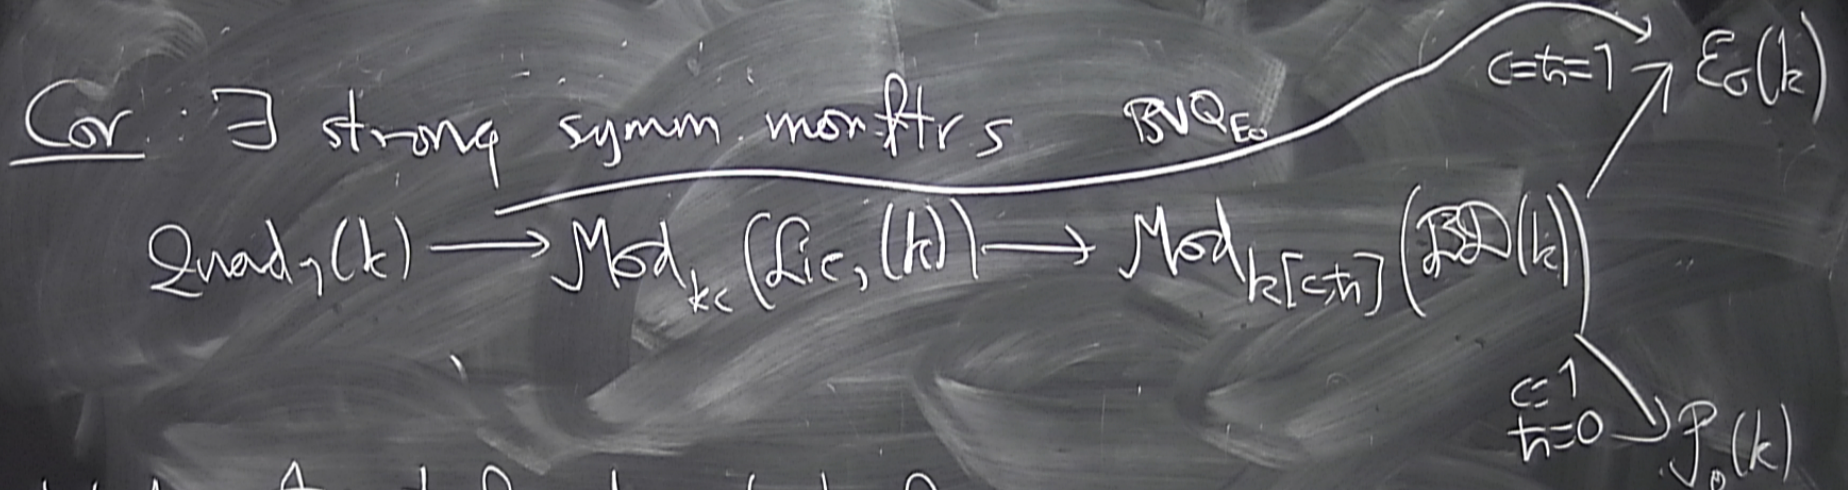 Cor: ∃ strong symm. mon. ftrs BVQ_{E_0} c=ħ=1 ℰ_0(k)
Quad_1(k) ⟶ Mod_{kc}(Lie_1(k)) ⟶ Mod_{k[c,ħ]}(BD(k))
c=1
ħ=0 P_0(k)